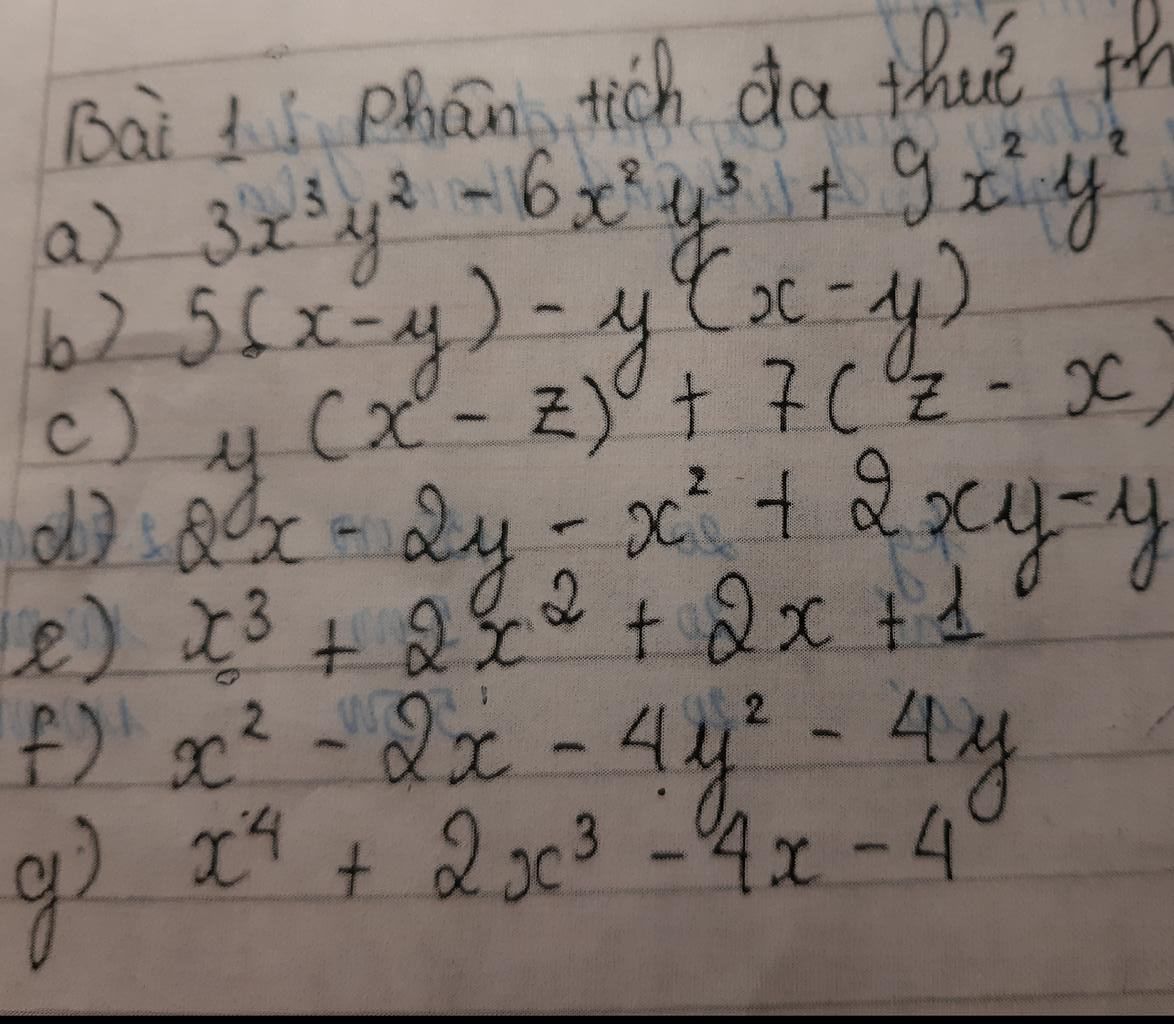 Bài 1: Phân tích đa thức th
a) 3x³y² - 6x²y³ + 9x²y²
b) 5(x-y) - y(x-y)
c) y(x - z) + 7(z - x)
d) 2x - 2y - x² + 2xy - y
e) x³ + 2x² + 2x + 1
f) x² - 2x - 4y² - 4y
g) x⁴ + 2x³ - 4x - 4